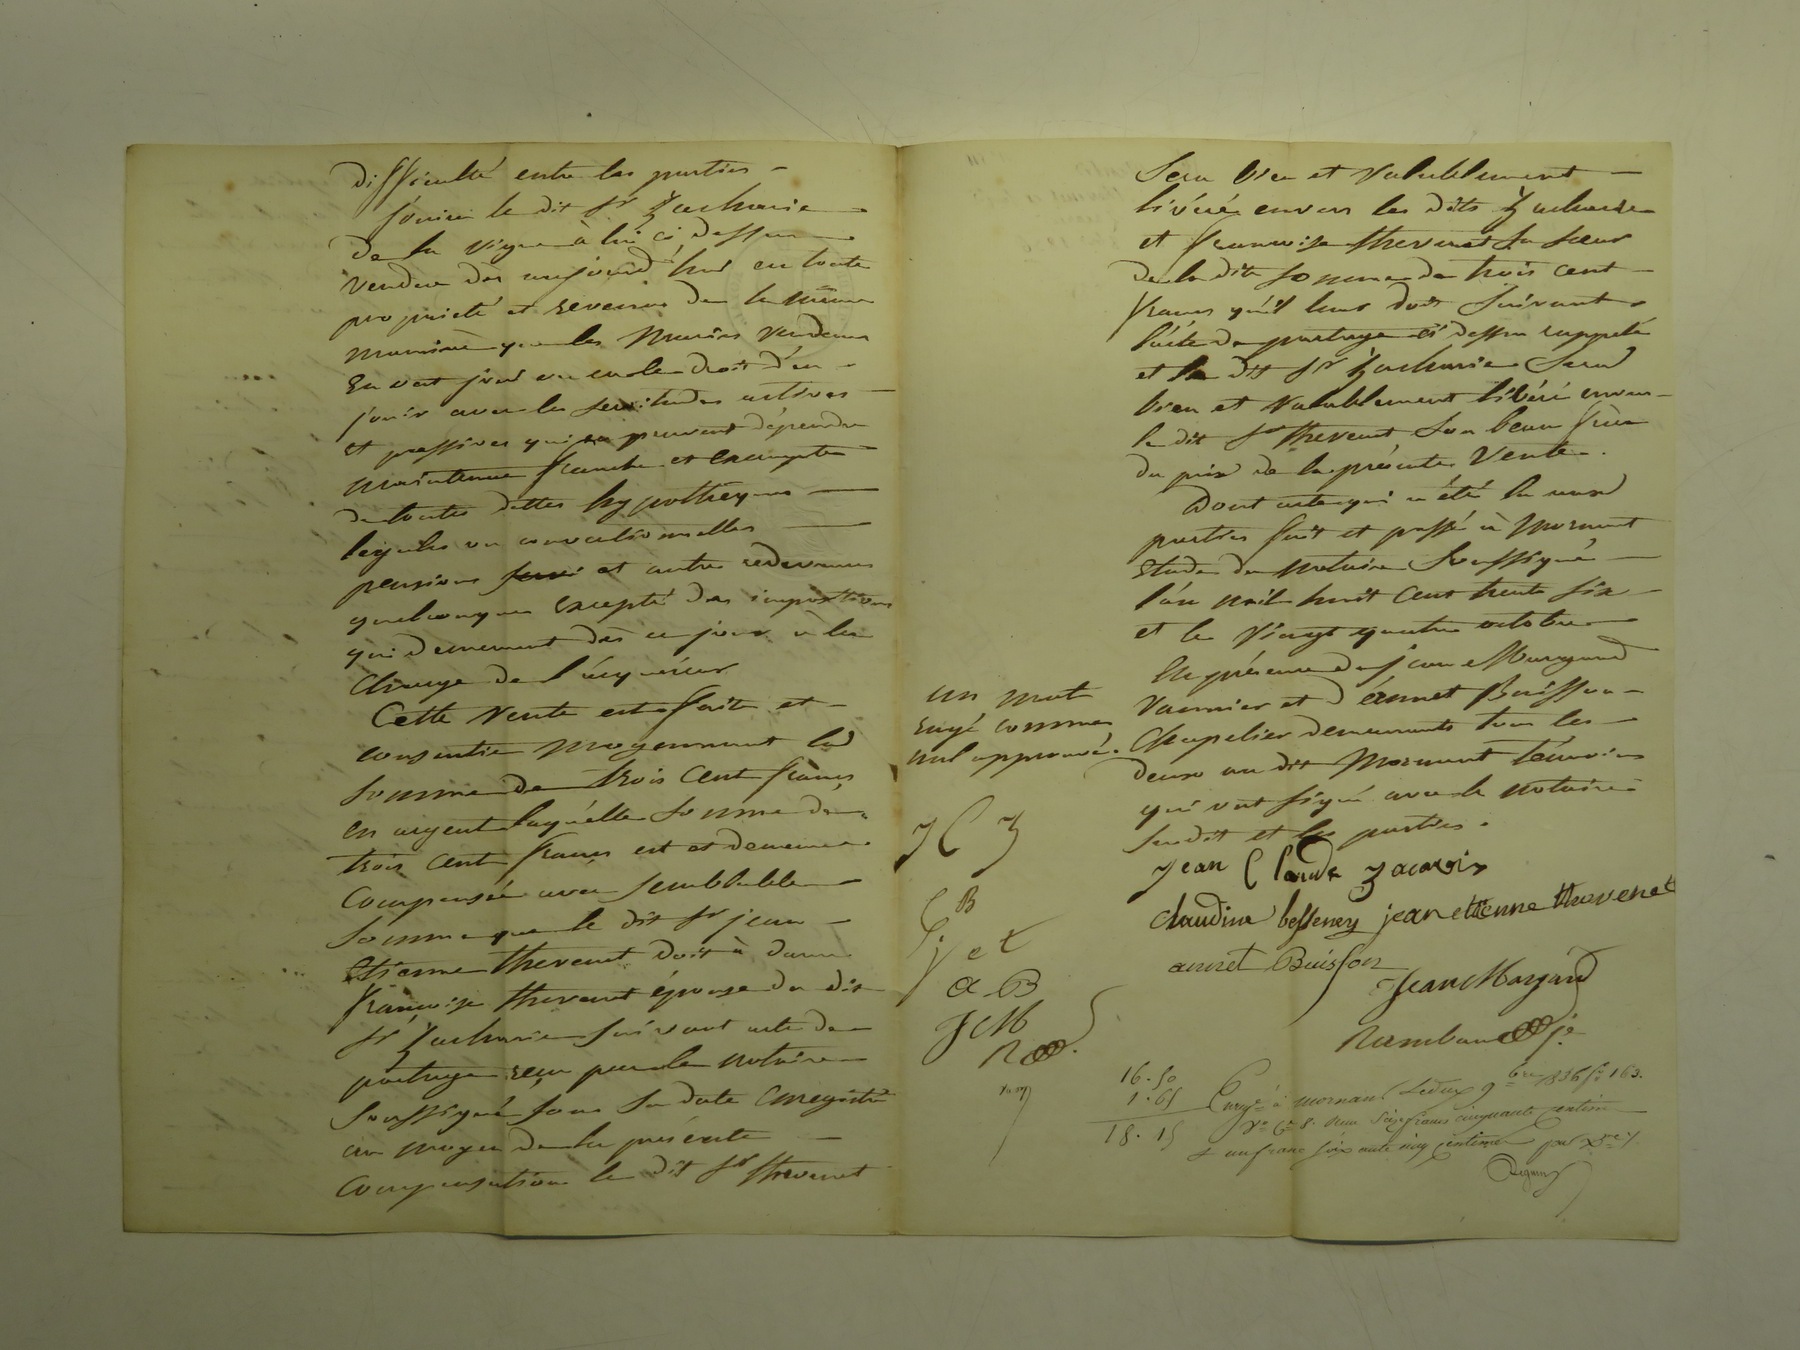 difficulté entre les parties
Jouira le dit Sr Zacharie
de la vigne à lui ci dessus
vendue dès aujourd'hui en toute
propriété et revenus de la même
manière que les mariés vendeurs
en ont joui ou eu le droit d'en
jouir avec les servitudes actives
et passives qui en peuvent dépendre
maintenue franche et exempte
de toutes dettes hypothèques
légales ou conventionnelles
pensions servis et autres redevances
quelconques excepté des impositions
qui demeurent dès ce jour à la
charge de l'acquéreur
Cette vente est faite et
consentie moyennant la
somme de trois cent francs
en argent laquelle somme de
trois cent francs est et demeure
compensée avec semblable
somme que le dit Sr jean
Etienne thevenet doit à dame
françoise thevenet épouse du dit
Sr Zacharie suivant acte de
partage reçu par le notaire
soussigné sous sa date enregistré
au moyen de la présente
compensation le dit Sr thevenet
sera bien et valablement
libéré envers les dits Zacharie
et françoise thevenet sa sœur
de la dite somme de trois cent
francs qu'il leur doit suivant
l'acte de partage ci dessus rappelé
et le dit Sr Zacharie sera
bien et valablement libéré envers
le dit Sr thevenet son beau frère
du prix de la présente vente.
Dont acte qui a été lu aux
parties fait et passé à Mornant
Etude du notaire soussigné
l'an mil huit cent trente six
et le vingt quatre octobre
En présence de jean Margand
vannier et d'annet Buisson
chapelier demeurants tous les
deux au dit Mornant témoins
qui ont signé avec le notaire
susdit et les parties.
un mot
rayé comme
nul approuvé.
J C Z
C B
j e t
a B
J M
R
jean Claude zacarie
claudine besseney jean etienne thevenet
annet Buisson
Jean Margand
Rambaud je
16.50
1.65
18.15
Enregé à Mornant Le deux 9bre 1836 fo 163.
Vo Ce 8. Reçu Seize francs cinquante centimes
& un franc soixante cinq centimes pour Dme